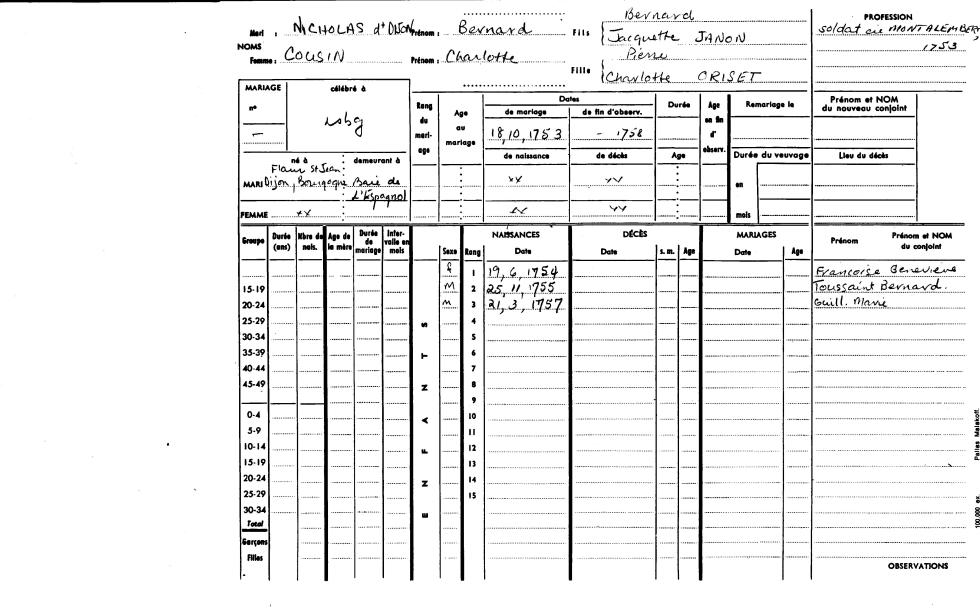 Mari : NICHOLAS d'Dijon Prénom : Bernard Fils { Bernard
Jacquette JANON
NOMS
Femme : COUSIN Prénom : Charlotte Fille { Pierre
Charlotte ORISET
PROFESSION
soldat cie MONTALEMBERT,
1753
MARIAGE
n°
—
célébré à
Lsbg
né à demeurant à
Flour St Jean
MARI Dijon, Bourgogne Baie de
L'Espagnol
FEMME xx
Rang du mari-age
Age au mariage
Dates
de mariage de fin d'observ.
18,10,1753 - 1758
de naissance de décès
xx xx
xx xx
Durée
Age
Age en fin d' observ.
Remariage le
Durée du veuvage
en
mois
Prénom et NOM
du nouveau conjoint
Lieu du décès
Groupe Durée (ans) Nbre de nais. Age de la mère Durée de mariage Inter-valle en mois
ENFANTS
Sexe Rang NAISSANCES Date
DÉCÈS Date s. m. Age
MARIAGES Date Age
Prénom Prénom et NOM du conjoint
f 1 19,6,1754 Francoise Genevieve
15-19 M 2 25,11,1755 Toussaint Bernard.
20-24 M 3 21,3,1757 Guill. Marie
25-29 4
30-34 5
35-39 6
40-44 7
45-49 8
9
0-4 10
5-9 11
10-14 12
15-19 13
20-24 14
25-29 15
30-34
Total
Garçons
Filles
OBSERVATIONS
100,000 ex. Malakoff.